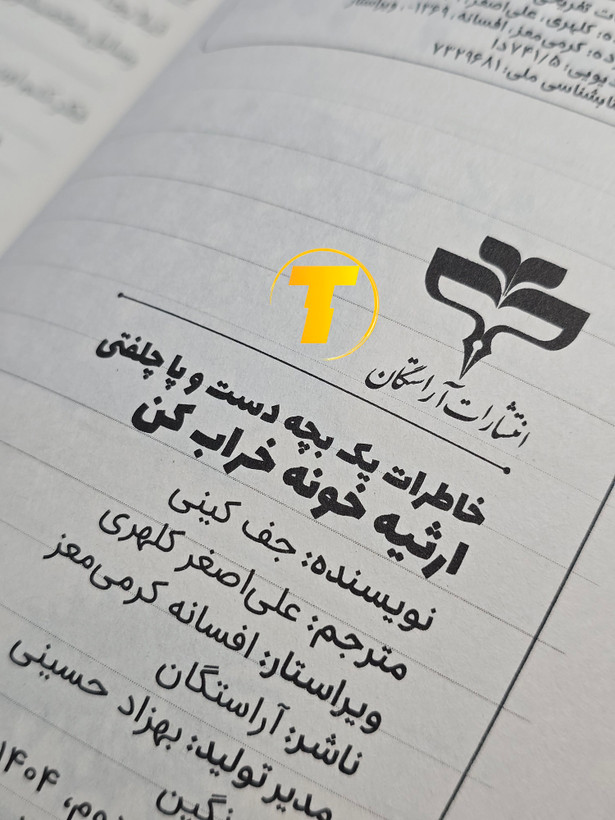 کلهری، علی‌اصغر،
کرمی‌مغز، افسانه، ۱۳۶۹-، ویراستار
۷۴۱/۵دا
ملی: ۷۳۲۹۶۸۱
T
انتشارات آراستگان
خاطرات یک بچه دست و پا چلفتی
ارثیه خونه خراب کن
نویسنده: جف کینی
مترجم: علی‌اصغر کلهری
ویراستار: افسانه کرمی‌مغز
ناشر: آراستگان
مدیر تولید: بهزاد حسینی